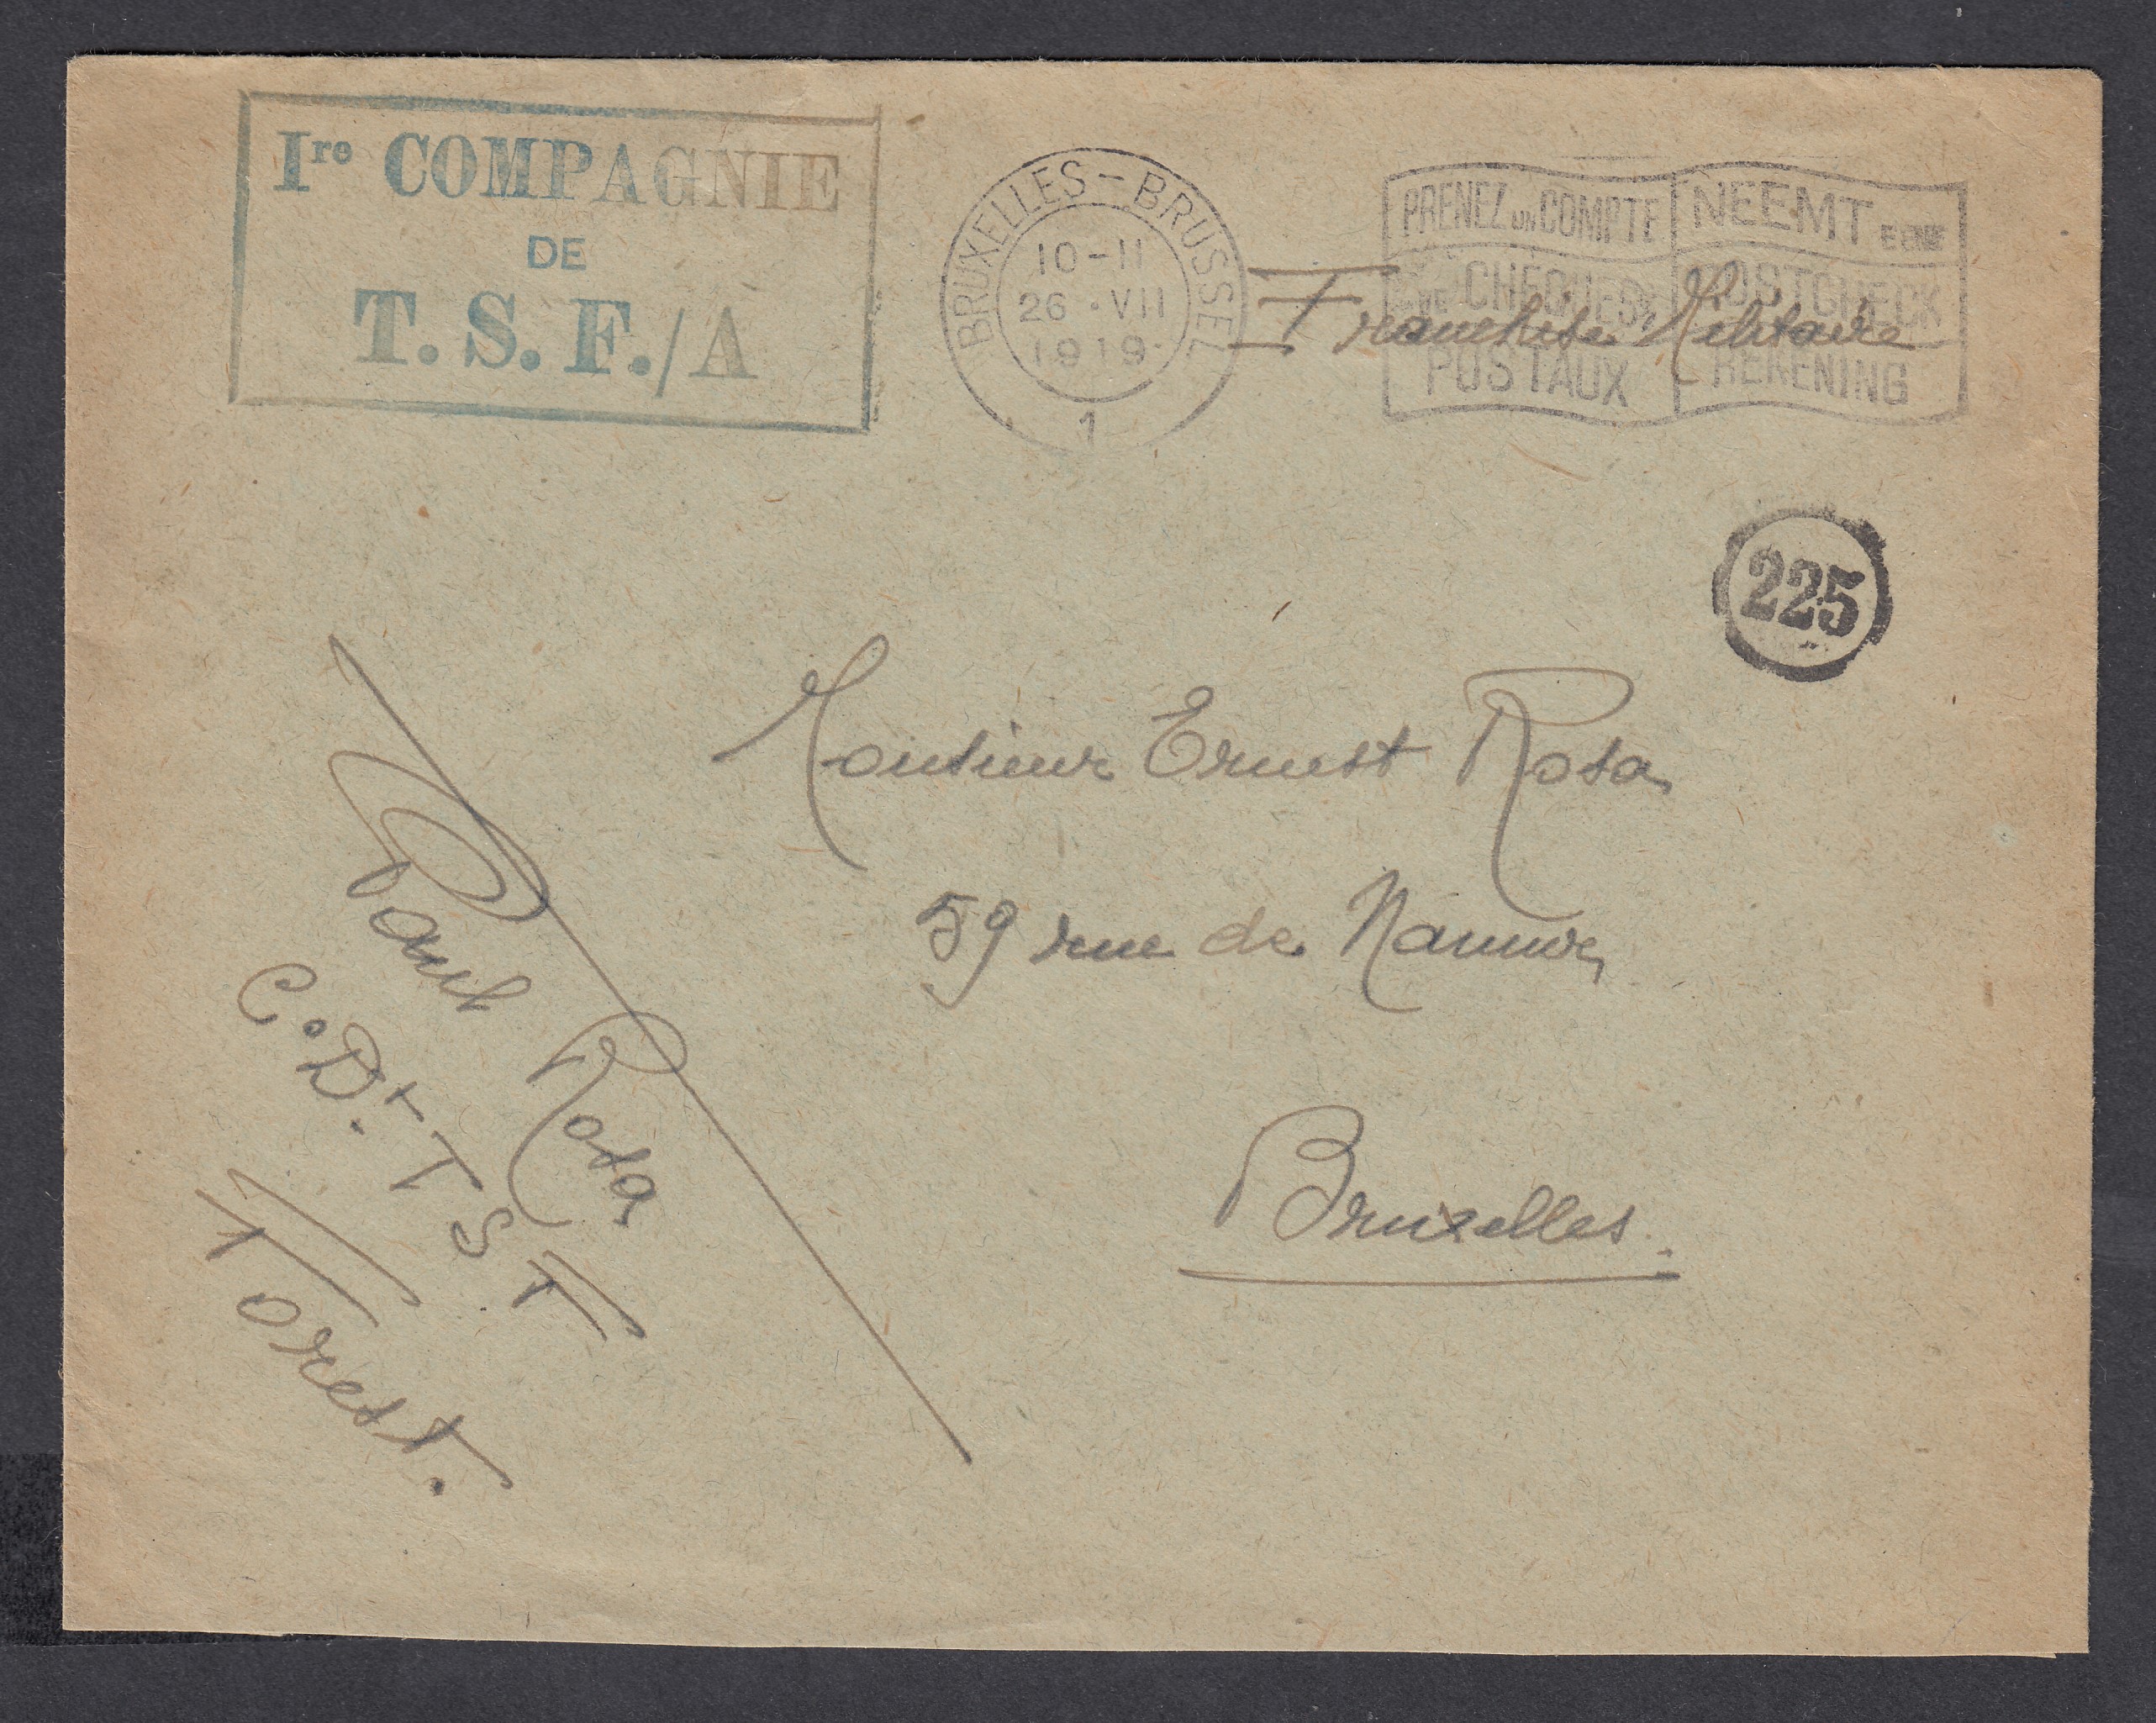 Ire COMPAGNIE
DE
T. S. F./A
BRUXELLES-BRUSSEL
10-11
26 ·VII
1919
1
PRENEZ UN COMPTE
CHEQUES
POSTAUX
NEEMT EENE
POSTCHECK
REKENING
Franchise Militaire
225
Monsieur Ernest Rosa
59 rue de Namur
Bruxelles.
Paul Rosa
C. Dt. T S F
Forest.